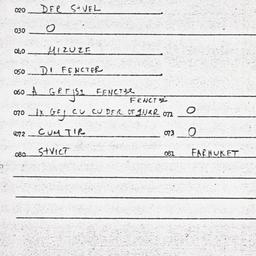 020 DER S+VEL
030 O
040 MIZUZE
050 DI FENCTER
060 A FENCTER
FENCTER
070 1X CU CU DER 071 O
072 CUM TIR 073 O
080 S+VICT 081 FARHUKET